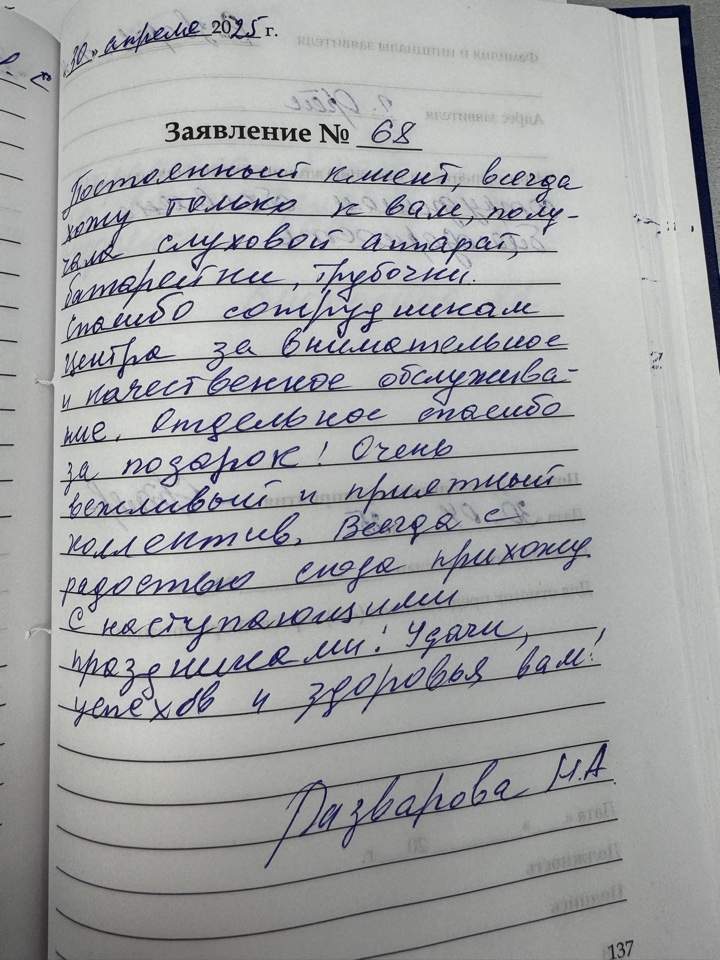 «30» апреля 2025 г.
Заявление № 68
Постоянный клиент, всегда
хожу только к вам, полу-
чала слуховой аппарат,
батарейки, трубочки.
Спасибо сотрудникам
центра за внимательное
и качественное обслужива-
ние. Отдельное спасибо
за подарок! Очень
вежливый и приятный
коллектив. Всегда с
радостью сюда прихожу
С наступающими
праздниками! Удачи,
успехов и здоровья вам!
Разварова Н.А.
137